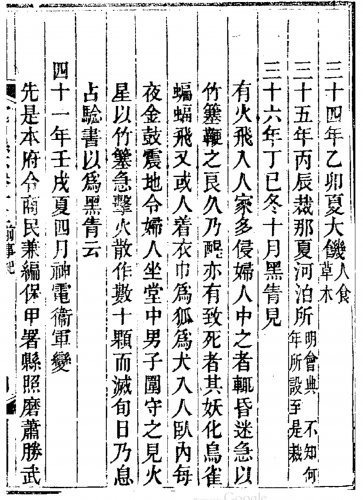 三十四年乙卯夏大饑人食草木
三十五年丙辰裁那夏河泊所明會典不知何年所設至是裁
三十六年丁巳冬十月黑眚見
有火飛入人家多侵婦人中之者輒昏迷急以
竹篾鞭之良久乃醒亦有致死者其妖化鳥雀
蝙蝠飛又或人着衣巾爲狐爲犬入人臥内每
夜金鼓震地令婦人坐堂中男子圍守之見火
星以竹篾急擊火散作數十顆而滅旬日乃息
占驗書以爲黑眚云
四十一年壬戌夏四月神電衞軍變
先是本府令商民兼編保甲署縣照磨蕭勝武
Google